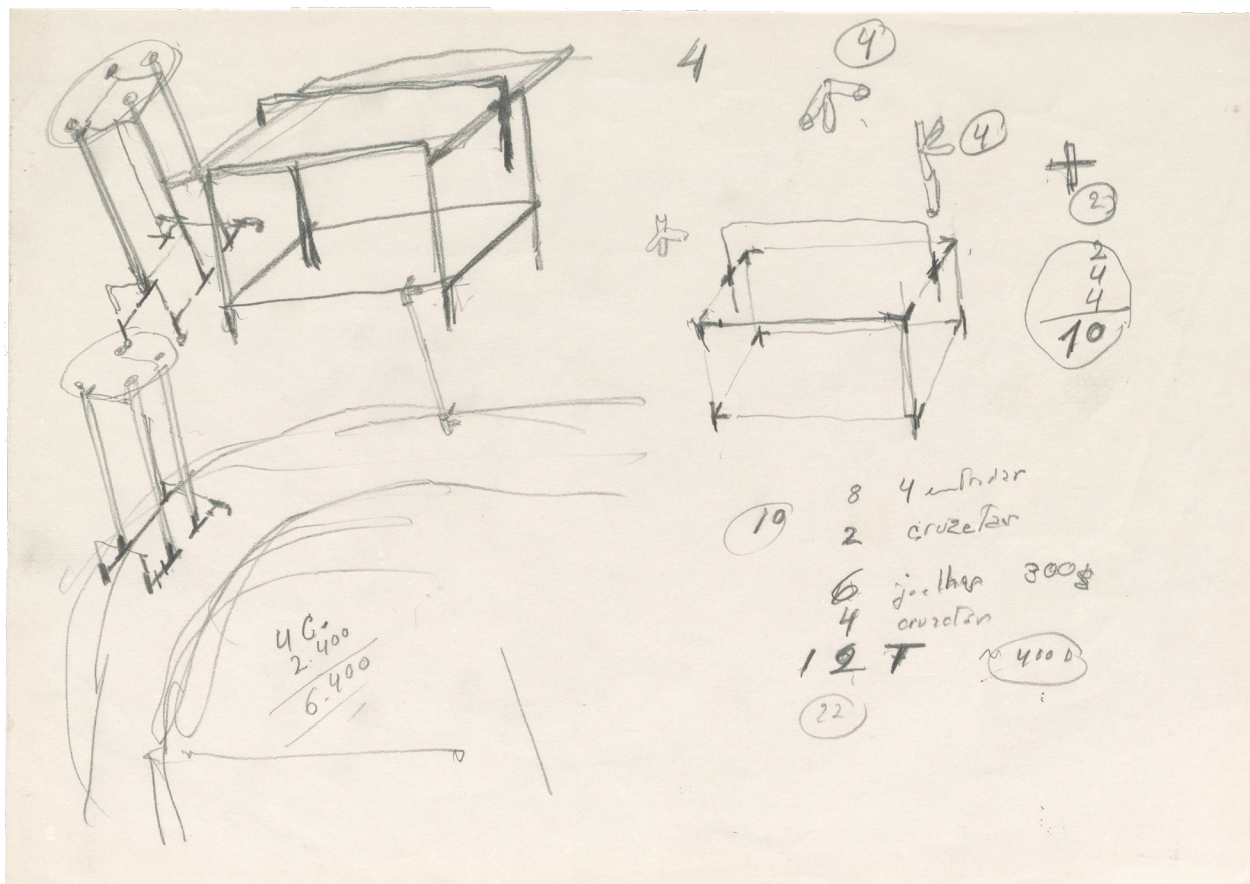 4
4
4
2
2
4
4
10
8 4 entradas
10
2 cruzetas
6 joelhos 300$
4 cruzetas
12 T 400
22
4 C.
2.400
6.400